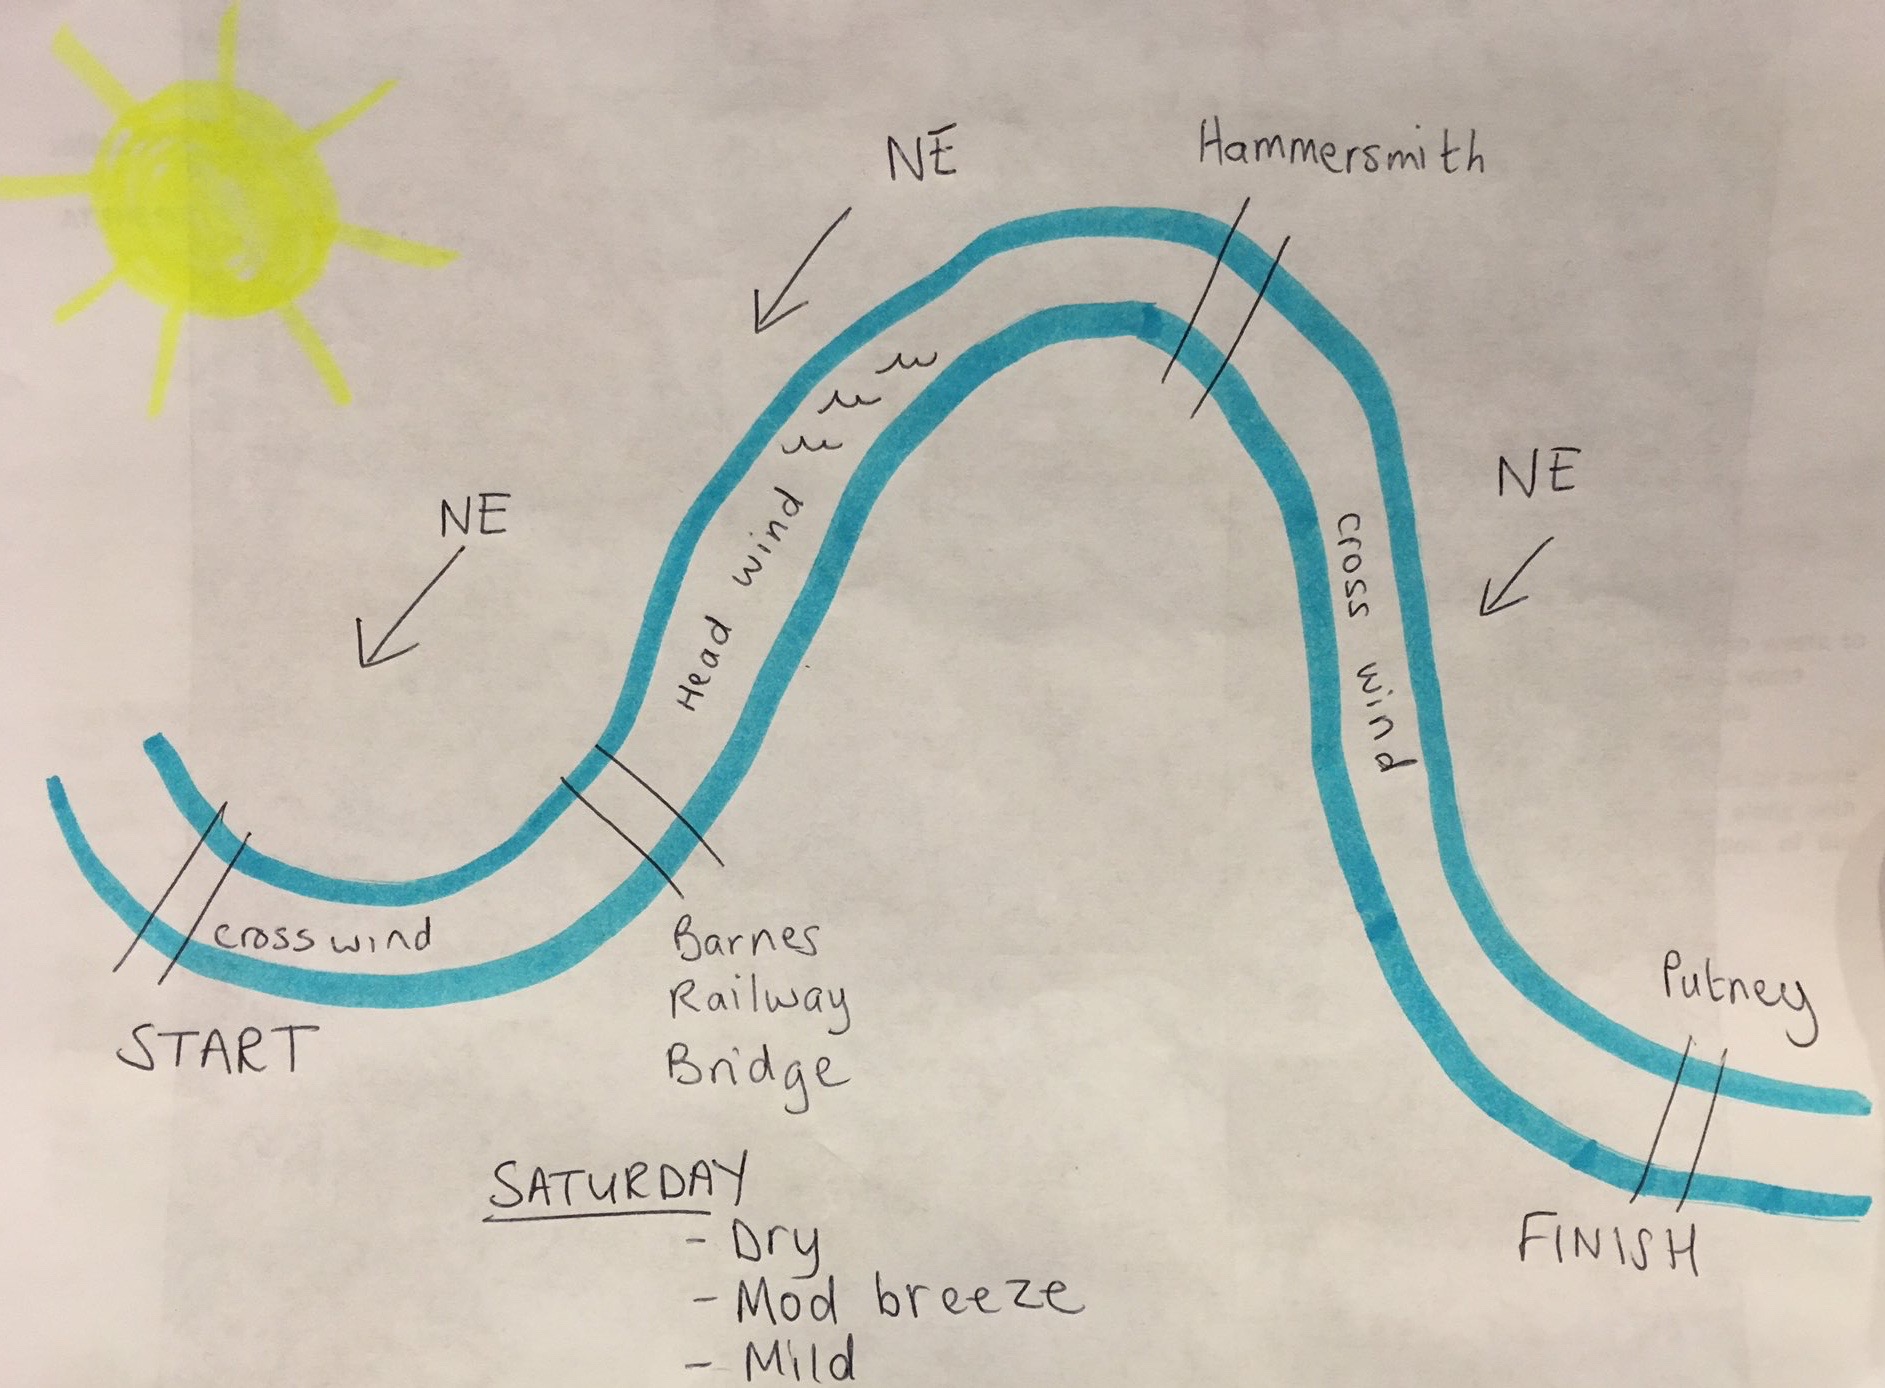 NE
Hammersmith
NE
NE
Head wind
cross wind
cross wind
START
Barnes
Railway
Bridge
Putney
FINISH
SATURDAY
- Dry
- Mod breeze
- Mild